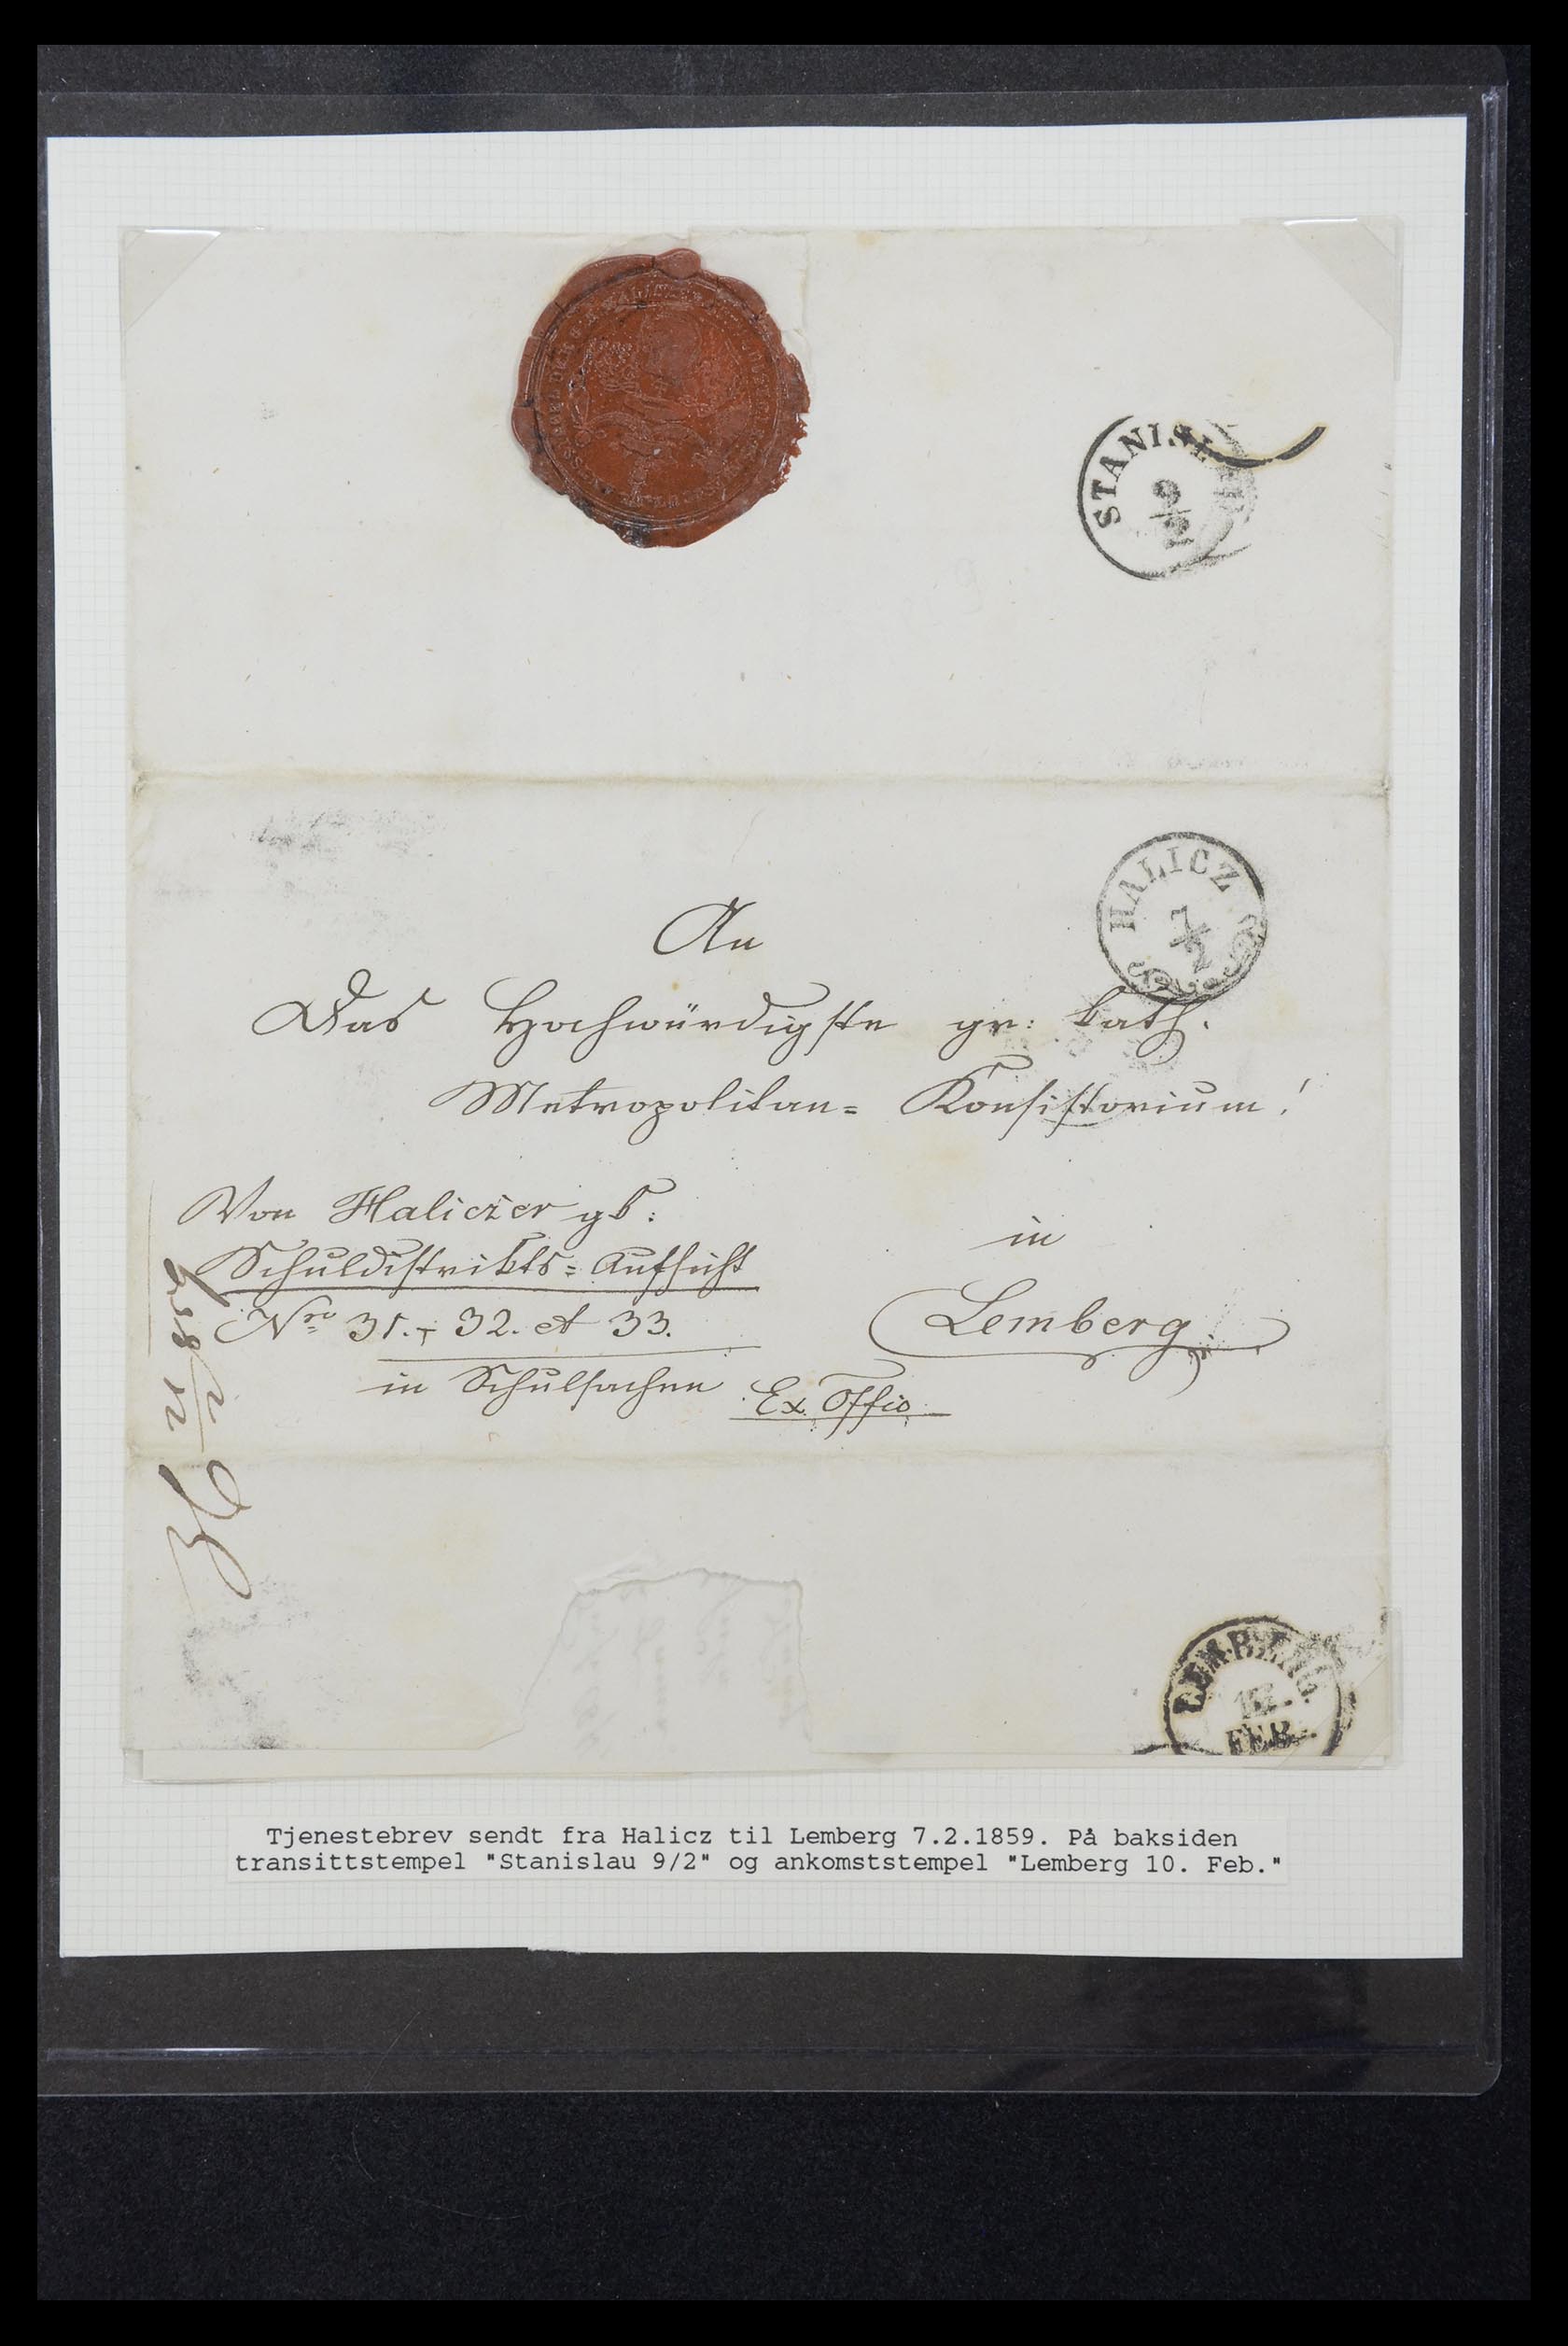 STANIS
9/2
HALICZ
7/2
An
Das Hochwürdigste gr: kath.
Metropolitan= Konsistorium!
Von Haliczer gk:
Schuldistrikts=Aufsicht
Nro 31., 32. et 33.
in Schulsachen
in
Lemberg
Ex Offio
LEMBERG
10.
FEB.
Tjenestebrev sendt fra Halicz til Lemberg 7.2.1859. På baksiden
transittstempel "Stanislau 9/2" og ankomststempel "Lemberg 10. Feb."